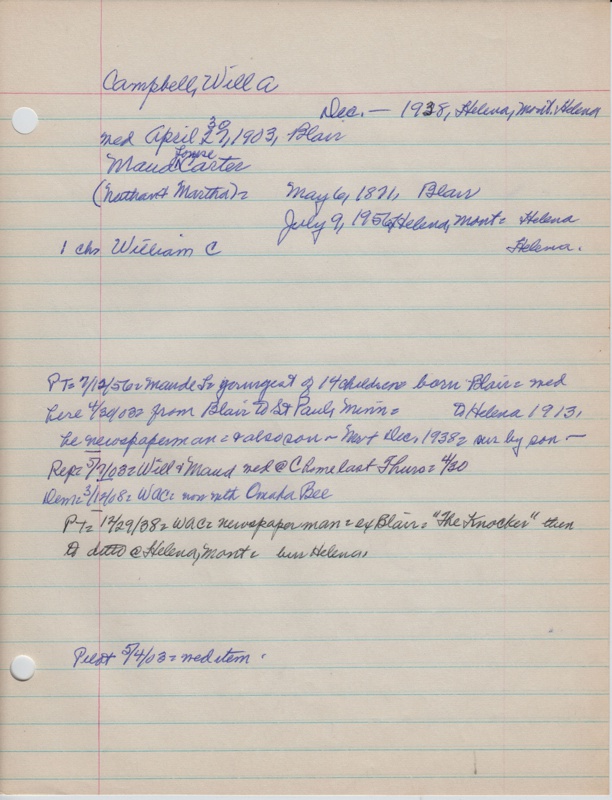 Campbell, Will A
Dec. — 1938, Helena, Mont. Helena
30
med April 27, 1903, Blair
Louise
Maud Carter
(Nathan & Martha) = May 6, 1871, Blair
July 9, 1956, Helena, Mont = Helena
1 chr William C Helena.
PT = 7/12/56 = Maude L = youngest of 14 children = born Blair = med
here 4/30/03 = from Blair to St Paul, Minn = to Helena 1913,
he newspaperman = & also son — Mr + Dec. 1938 = sur by son —
Rep = 5/7/03 = Will & Maud med @ C home last Thurs = 4/30
Dem = 3/12/08 = WAC = now with Omaha Bee
PT = 12/29/38 = WAC = newspaper man = ex Blair = "The Knocker" then
to ditto @ Helena, Mont = bur Helena,
Pilot 5/4/03 = med item .